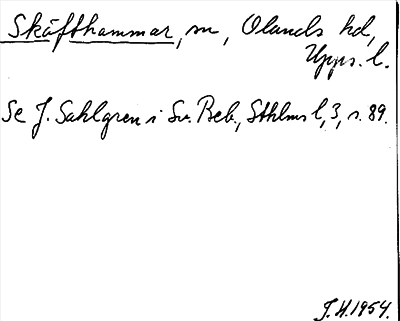 Skäfthammar, sn, Olands hd,
Upps. l.
Se J. Sahlgren i Sv. Beb., Sthlms l, 3, s. 89.
J.H. 1954.